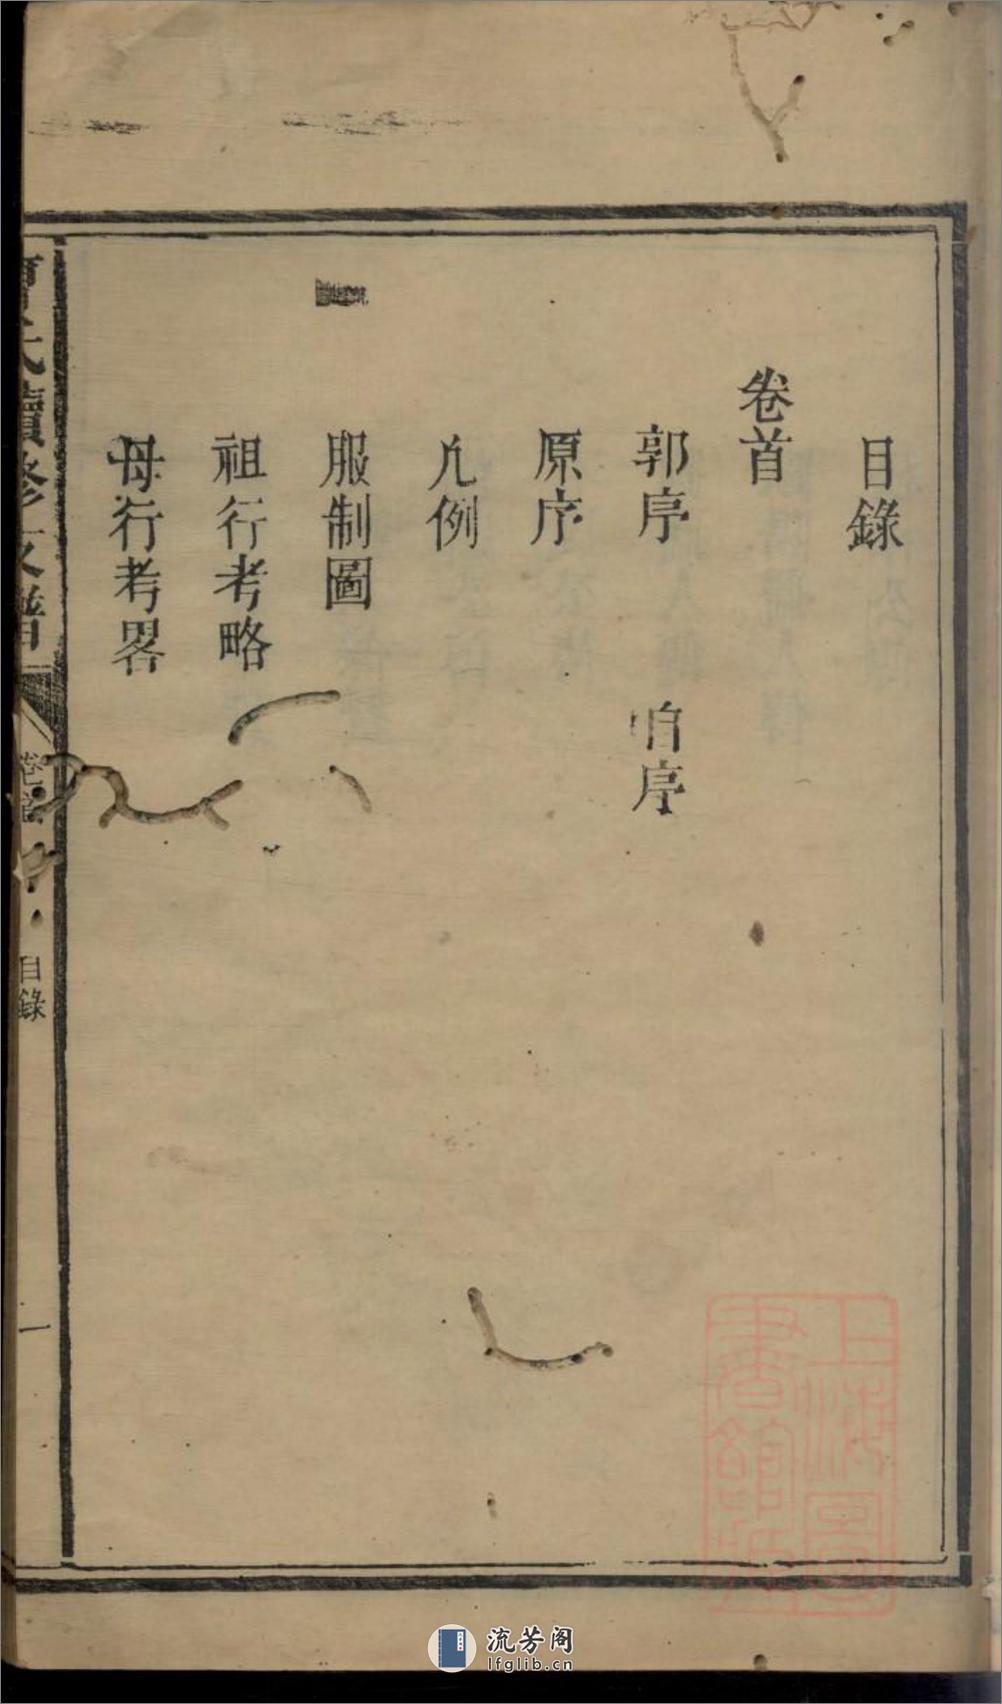 目錄
卷首
郭序 序
原序
凡例
服制圖
祖行考略
母行考畧
氏續修支譜 卷首 目錄 一
上海圖
書館藏
流芳阁
lfglib.cn